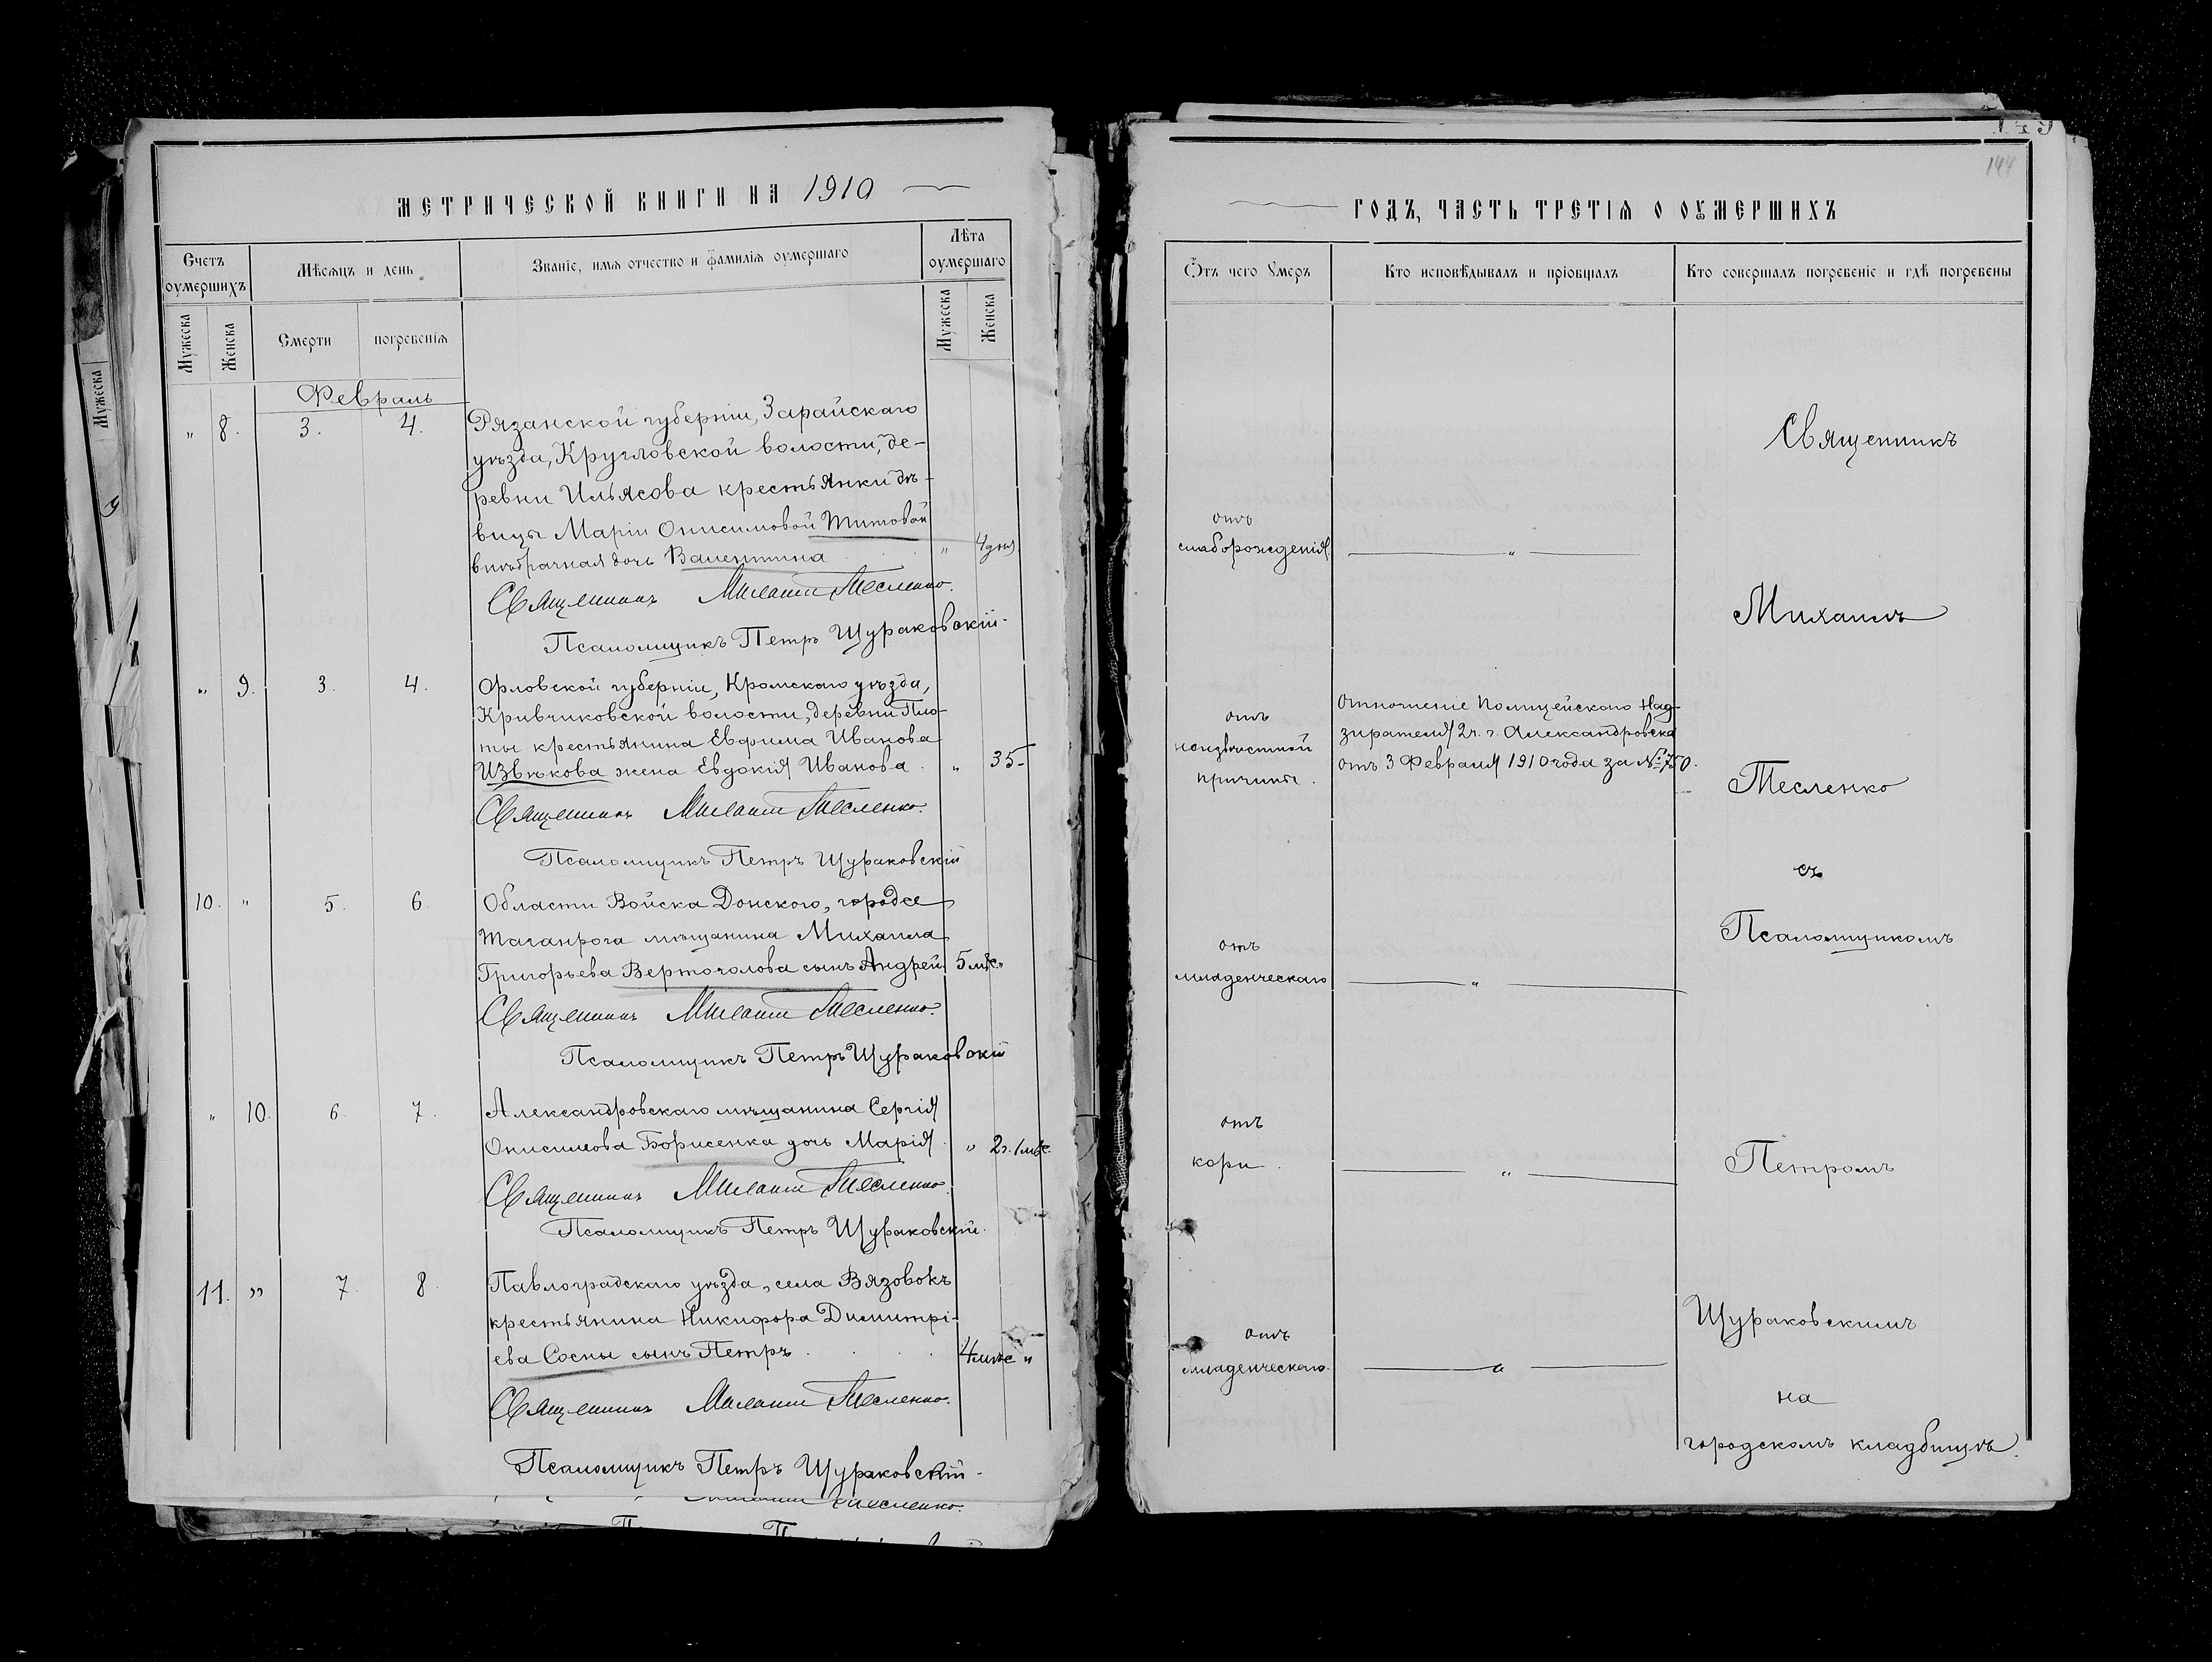 МЕТРИЧЕСКОЙ КНИГИ НА 1910
Счетъ оумершихъ
Мѣсяцъ и день
Званіе, имя отчество и фамилія оумершаго
Лѣта оумершаго
Мужеска
Женска
Смерти
погребенія
Мужеска
Женска
Февраль
„ 8. 3. 4.
Рязанской губерніи, Зарайскаго
уѣзда, Кругловской волости, де-
ревни Ильясова крестьянки дѣ-
вицы Маріи Онисимовой Титовой
внѣбрачная дочь Валентина „ 4 дня
Священникъ Михаилъ Тесленко.
Псаломщикъ Петръ Щураковскій.
„ 9. 3. 4.
Орловской губерніи, Кромскаго уѣзда,
Кривчиковской волости, деревни Пло-
ты крестьянина Евфима Иванова
Извѣкова жена Евдокія Иванова „ 35
Священникъ Михаилъ Тесленко.
Псаломщикъ Петръ Щураковскій
10. „ 5. 6.
Области Войска Донского, города
Таганрога мѣщанина Михаила
Григорьева Вертоголова сынъ Андрей 5 мѣс. „
Священникъ Михаилъ Тесленко.
Псаломщикъ Петръ Щураковскій
„ 10. 6. 7.
Александровскаго мѣщанина Сергія
Онисимова Борисенка дочь Марія „ 2 г. 1 мѣс.
Священникъ Михаилъ Тесленко.
Псаломщикъ Петръ Щураковскій.
11. „ 7. 8.
Павлоградскаго уѣзда, села Вязовокъ
крестьянина Никифора Димитрі-
ева Сосны сынъ Петръ 4 мѣс „
Священникъ Михаилъ Тесленко.
Псаломщикъ Петръ Щураковскій.
Тесленко.
Мужеска
144
ГОДЪ, ЧАСТЬ ТРЕТІЯ О ОУМЕРШИХЪ
Отъ чего Умеръ
Кто исповѣдывалъ и пріобщалъ
Кто совершалъ погребеніе и гдѣ погребены
отъ
слаборожденія „
отъ
неизвѣстной
причины.
Отношеніе Полицейского Над-
зирателя 2 ч. г. Александровска
отъ 3 Февраля 1910 года за № 750.
отъ
младенческаго „
отъ
кори. „
отъ
младенческаго. „
Священникъ
Михаилъ
Тесленко
съ
Псаломщикомъ
Петромъ
Щураковскимъ
на
городскомъ кладбищѣ.